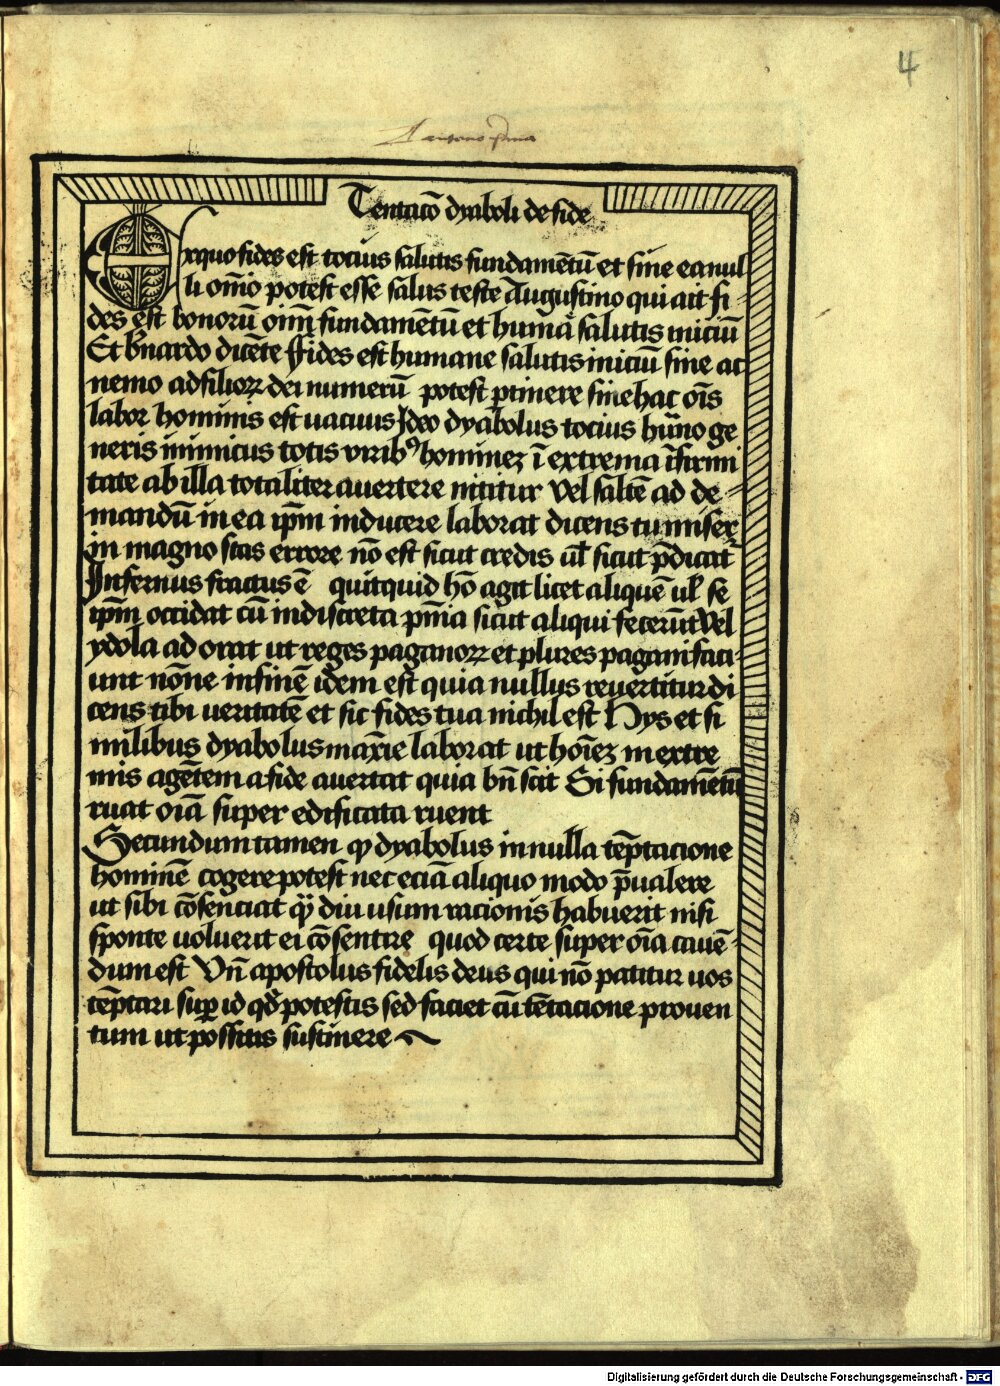 4
Tentatō dyaboli de fide
Exquo fides est tocius salutis fundamētū et sine ea nul
li om̄io potest esse salus teste Augustino qui ait fi-
des est bonorū om̄ fundamētū et humā salutis iniciū
Et b̄nardo dicēte Fides est humane salutis iniciū sine ac
nemo ad filioꝝ dei numerū potest ꝑtinere sine hac oīs
labor hominis est vacuus Ideo dyabolus tocius hūno ge
neris inimicus totis viribꝰ hominez ī extrema īfirmi
tate ab illa totaliter avertere nititur Vel saltē ad de-
mandū in ea ip̄m inducere laborat dicens tu miser
in magno stas errore nō est sicut credis ul̄ sicut p̄dicat̄
Infernus fractus ē quitquid hō agit licet aliquē ul̄ se
ip̄m occidat cū indiscreta pn̄ia sicut aliqui fecerūt Vel
ydola ad orat ut reges paganoꝝ et plures pagani faci-
unt nōne in finē idem est quia nullus revertitur di
cens tibi veritatē et sic fides tua nichil est Hys et si
milibus dyabolus maxīe laborat ut hoīez in extre
mis agētem a fide avertat quia bn̄ scit Si fundamētū
ruat oīa super edificata ruent
Secundum tamen ꝙ dyabolus in nulla tēptacione
hominē cogere potest nec eciā aliquo modo p̄valere
ut sibi cōsenciat ꝙ̄ diu usum racionis habuerit nisi
sponte voluerit ei cōsentire quod certe super oīa cavē-
dum est Vn̄ apostolus fidelis deus qui nō patitur vos
tēptari suꝑ id qd̄ potestis sed faciet cū tētacione proven
tum ut possitis sustinere
Digitalisierung gefördert durch die Deutsche Forschungsgemeinschaft - DFG